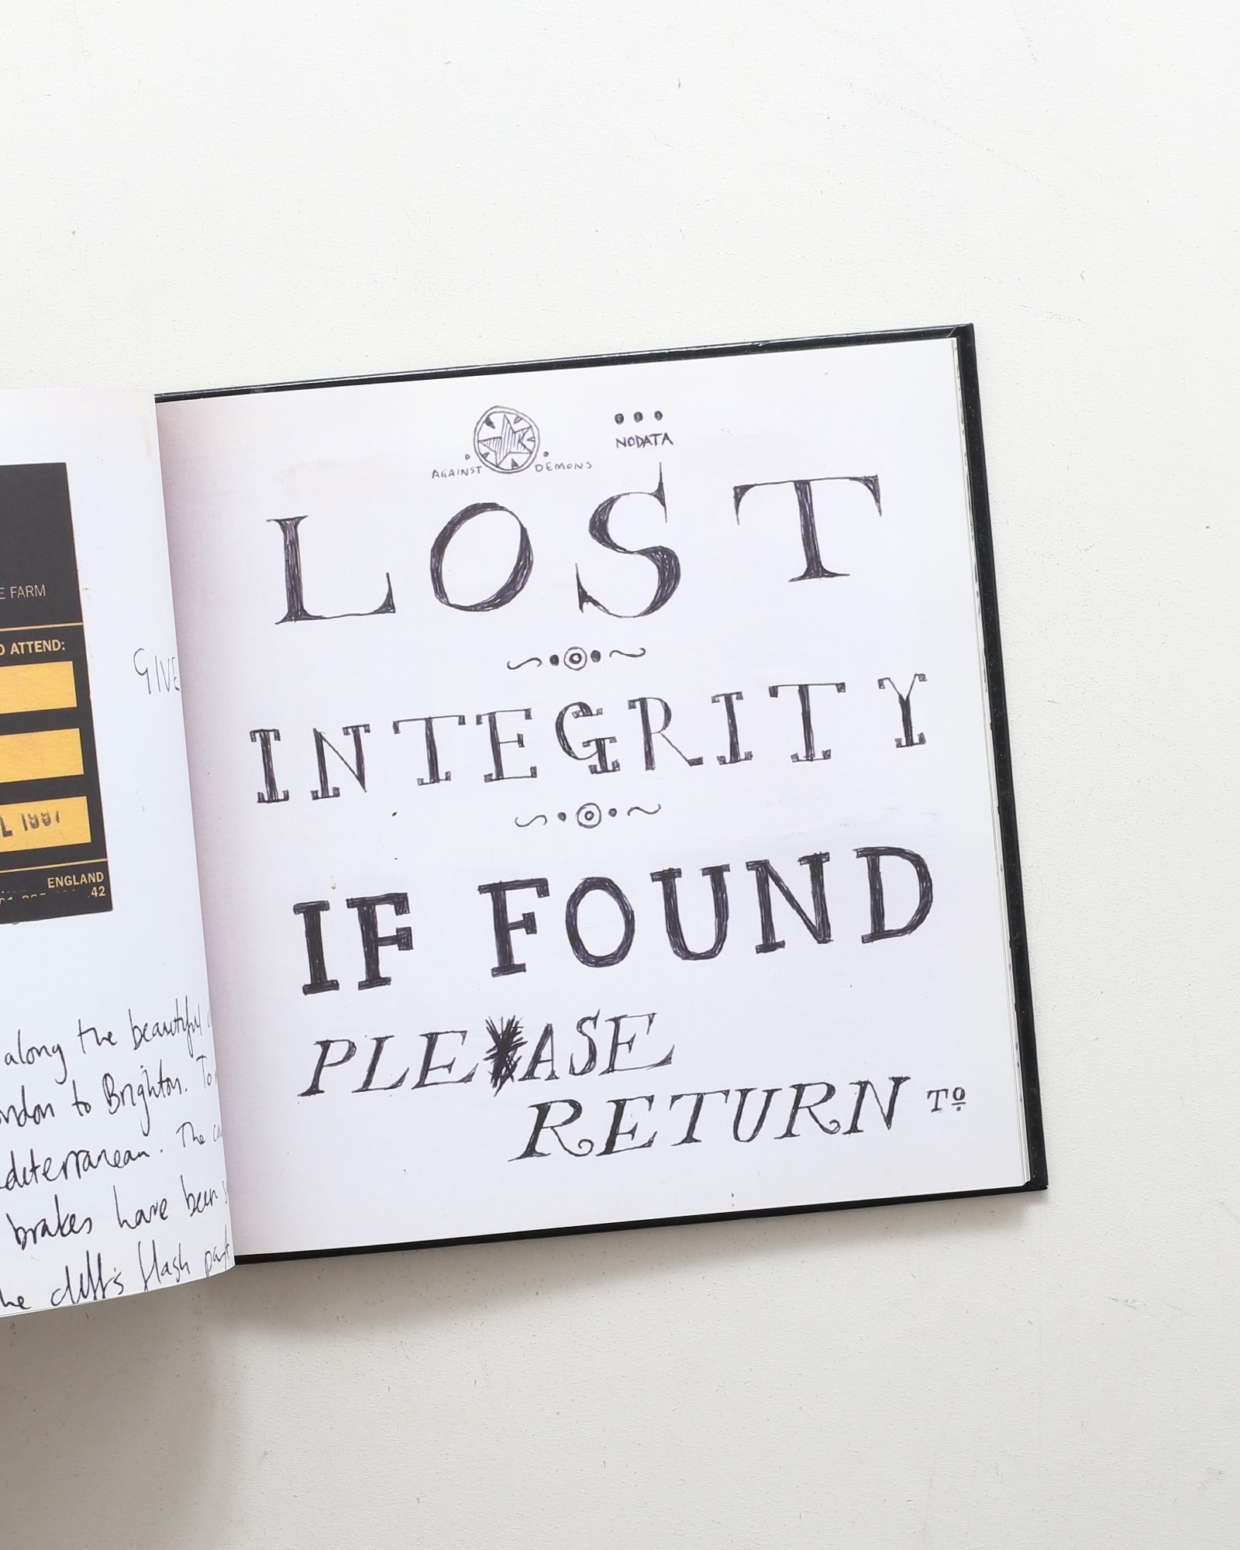 E FARM
O ATTEND:
L 1997
ENGLAND
42
GIVE
along the beautiful
to Brighton.
The
brakes have been
cliff's flash
NODATA
AGAINST DEMONS
K
LOST
INTEGRITY
IF FOUND
PLEASE
RETURN TO